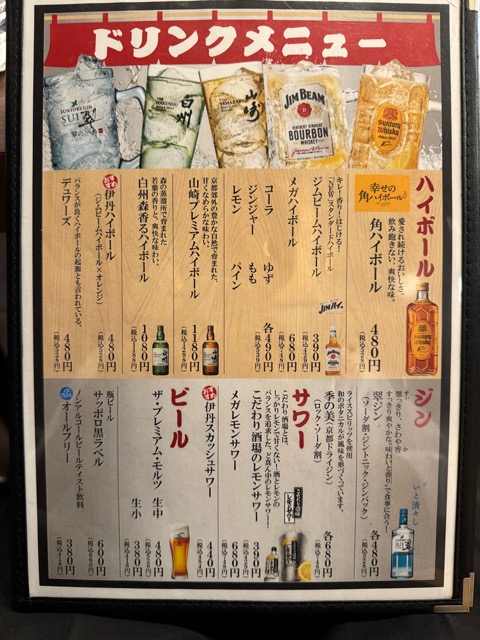 ドリンクメニュー
SUNTORY GIN
SUI
翠
白州
山崎
JIM BEAM
KENTUCKY STRAIGHT
BOURBON
WHISKEY
Suntory
Whisky
ハイボール
幸せの
角ハイボール
愛され続けるおいしさ。
飲み飽きない、爽快な味。
角ハイボール
480円
(税込528円)
キレー香りーはじける!
「NEW」スタンダードハイボール
ジムビームハイボール
390円
(税込429円)
メガハイボール
680円
(税込748円)
コーラ ゆず
ジンジャー もも
レモン パイン
各490円
(税込539円)
京都郊外の豊かな自然で育まれた、
甘くなめらかな味わい。
山崎プレミアムハイボール
1180円
(税込1298円)
森の蒸溜所で育まれた
若葉の香りと、爽快な味わい。
白州森香るハイボール
1080円
(税込1188円)
伊丹ハイボール
(ジムビームハイボール×オレンジ)
480円
(税込528円)
バランスが良くハイボールの起源とも言われている。
デュワーズ
480円
(税込528円)
ジン
翠っきり、さわや香
すっきり爽やかな“味わいと香り”で食事に合う!
翠ジン
(ソーダ割・ジントニック・ジンバック)
各480円
(税込528円)
いと清々し
ライススピリッツを使用
和のボタニカルが風味を形づくっています。
季の美(京都ドライジン)
(ロック・ソーダ割)
各680円
(税込748円)
サワー
こだわり酒場とは、
しっかりレモン、甘くない!酒とレモンの
バランスを追求した、ど真ん中のレモンサワー!
こだわり酒場のレモンサワー
390円
(税込429円)
メガレモンサワー
680円
(税込748円)
伊丹スカッシュサワー
440円
(税込484円)
ビール
ザ・プレミアム・モルツ 生中
480円
(税込528円)
生小
380円
(税込418円)
瓶ビール
サッポロ黒ラベル
600円
(税込660円)
ノンアルコールビールテイスト飲料
オールフリー
380円
(税込418円)